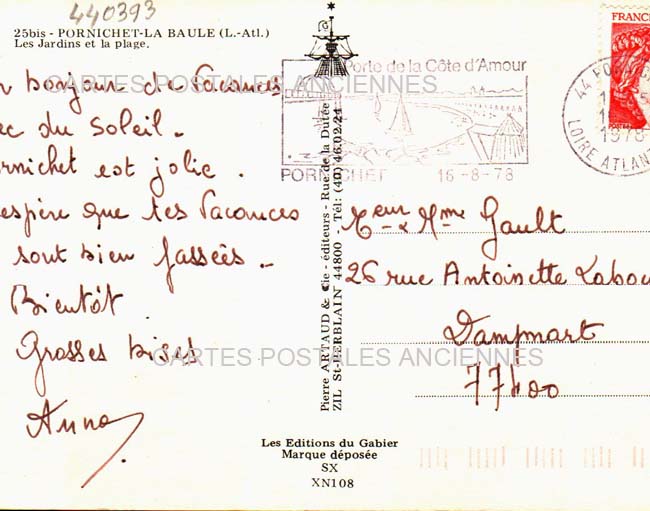 440393
25bis - PORNICHET-LA BAULE (L.-Atl.)
Les Jardins et la plage.
bonjour de Vacances
ec du soleil -
rnichet est jolie.
espère que tes Vacances
sont bien passées -
Bientôt
Grosses bises
Anna
Porte de la Côte d'Amour
PORNICHET 16-8-78
FRANCE
44 PO
1978
LOIRE ATLANT
Pierre ARTAUD & Cie - éditeurs - Rue de la Dutée
ZIL St-HERBLAIN 44800 - Tél: (40) 46.02.24
eur & Mme Gault
26 rue Antoinette Labou
Dampmart
77400
Les Editions du Gabier
Marque déposée
SX
XN108
CARTES POSTALES ANCIENNES
CARTES POSTALES ANCIENNES